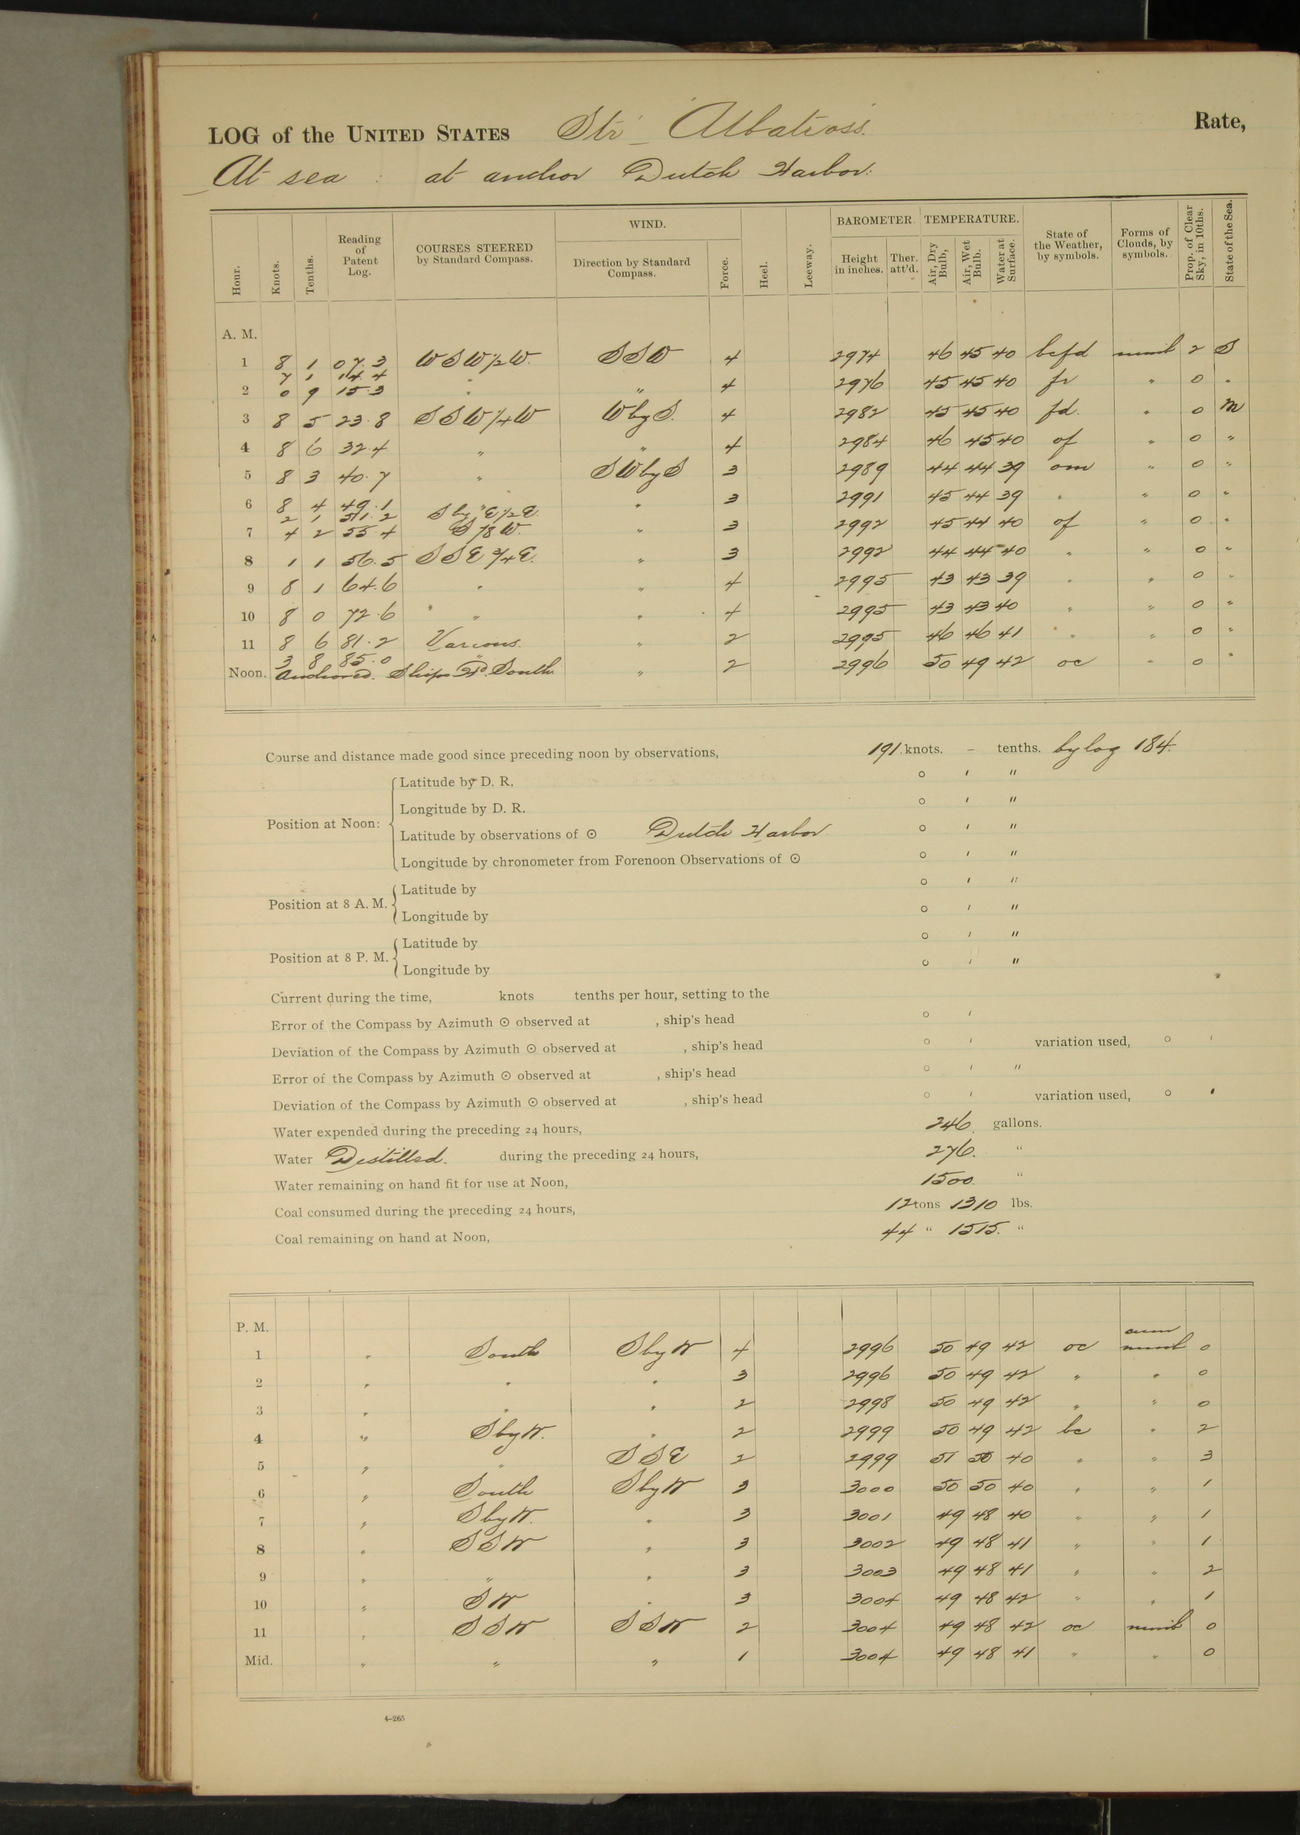 LOG of the UNITED STATES Str "Albatross" Rate,
At sea : at anchor Dutch Harbor:
Hour. Knots. Tenths. Reading of Patent Log. COURSES STEERED by Standard Compass. WIND. Direction by Standard Compass. Force. Heel. Leeway. BAROMETER. Height in inches. Ther. att'd. TEMPERATURE. Air, Dry Bulb, Air, Wet Bulb. Water at Surface. State of the Weather, by symbols. Forms of Clouds, by symbols. Prop. of Clear Sky, in 10ths. State of the Sea.
A. M.
1 8 1 07.3 WSW 1/2 W. SSW 4 2974 46 45 40 bcfd nimb 2 S
7 1 14.4
2 0 9 15.3 " " 4 2976 45 45 40 fr " 0 "
3 8 5 23.8 SSW 1/4 W W by S. 4 2982 45 45 40 fd. " 0 M
4 8 6 32 4 " " 4 2984 46 45 40 of " 0 "
5 8 3 40.7 " SW by S 3 2989 44 44 39 om " 0 "
6 8 4 49.1 " " 3 2991 45 44 39 " " 0 "
2 1 51.2 S by E 1/2 E.
7 4 2 55 4 S 7/8 W. " 3 2992 45 44 40 of " 0 "
8 1 1 56.5 SSE 3/4 E. " 3 2992 44 44 40 " " 0 "
9 8 1 64.6 " " 4 2995 43 43 39 " " 0 "
10 8 0 72.6 " " " 4 2995 43 43 40 " " 0 "
11 8 6 81.2 Various. " 2 2995 46 46 41 " " 0 "
3 8 85.0 "
Noon. Anchored. Ships Hd. South " 2 2996 50 49 42 oc " 0 "
Course and distance made good since preceding noon by observations, 191 knots. – tenths. by log 184.
Position at Noon: Latitude by D. R. ° ′ ″
Longitude by D. R. ° ′ ″
Latitude by observations of ☉ Dutch Harbor ° ′ ″
Longitude by chronometer from Forenoon Observations of ☉ ° ′ ″
Position at 8 A. M. Latitude by ° ′ ″
Longitude by ° ′ ″
Position at 8 P. M. Latitude by ° ′ ″
Longitude by ° ′ ″
Current during the time, knots tenths per hour, setting to the
Error of the Compass by Azimuth ☉ observed at , ship's head ° ′
Deviation of the Compass by Azimuth ☉ observed at , ship's head ° ′ variation used, ° ′
Error of the Compass by Azimuth ☉ observed at , ship's head ° ′ ″
Deviation of the Compass by Azimuth ☉ observed at , ship's head ° ′ variation used, ° ′
Water expended during the preceding 24 hours, 246. gallons.
Water Distilled. during the preceding 24 hours, 276. "
Water remaining on hand fit for use at Noon, 1500 "
Coal consumed during the preceding 24 hours, 12 tons 1310 lbs.
Coal remaining on hand at Noon, 44 " 1515. "
P. M.
cum
1 " South S by W 4 2996 50 49 42 oc nimb 0
2 " " " 3 2996 50 49 42 " " 0
3 " " " 2 2998 50 49 42 " " 0
4 " S by W. " 2 2999 50 49 42 bc " 2
5 " " SSE 2 2999 51 50 40 " " 3
6 " South S by W 3 3000 50 50 40 " " 1
7 " S by W. " 3 3001 49 48 40 " " 1
8 " SSW " 3 3002 49 48 41 " " 1
9 " " " 3 3003 49 48 41 " " 2
10 " SW " 3 3004 49 48 42 " " 1
11 " SSW SSW 2 3004 49 48 42 oc nimb 0
Mid. " " " 1 3004 49 48 41 " " 0
4–265